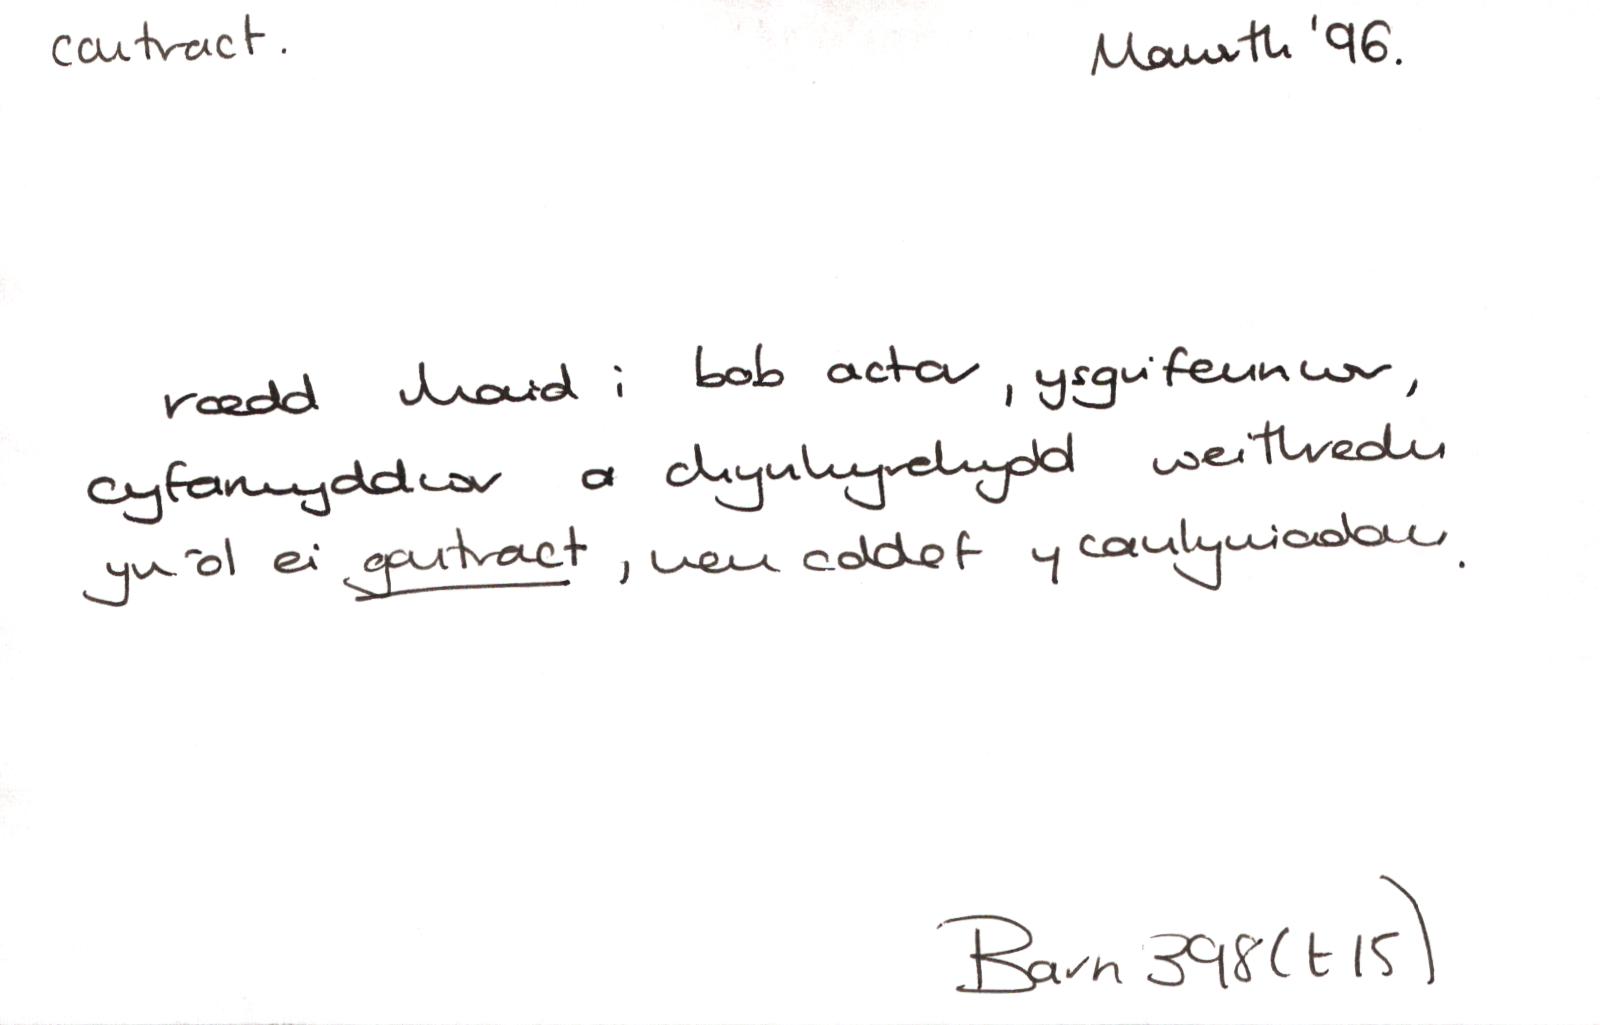 contract. Mawrth '96.
roedd rhaid i bob actor, ysgrifennwr,
cyfarwyddwr a chynhyrchydd weithredu
yn ôl ei gontract, neu oddef y canlyniadau.
Barn 398 (t 15)